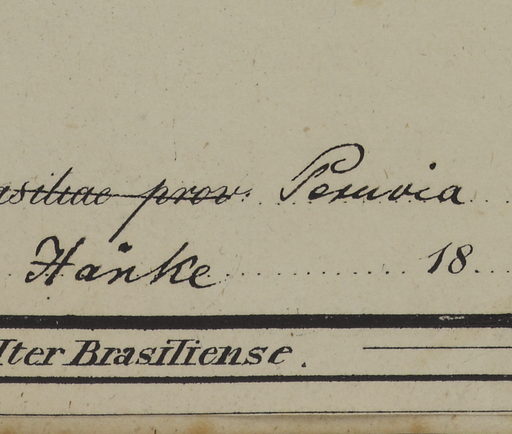 asiliae prov. Peruvia
Hänke 18
Iter Brasiliense.